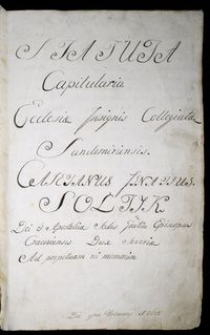 STATUTA
Capitularia
Ecclesiæ Insignis Collegiatæ
Sandomiriensis.
CAJETANUS IGNATIUS
SOLTIK
Dei & Apostolicæ Sedis Gratia Episcopus
Cracoviensis Dux Severiæ
Ad perpetuam rei memoriam